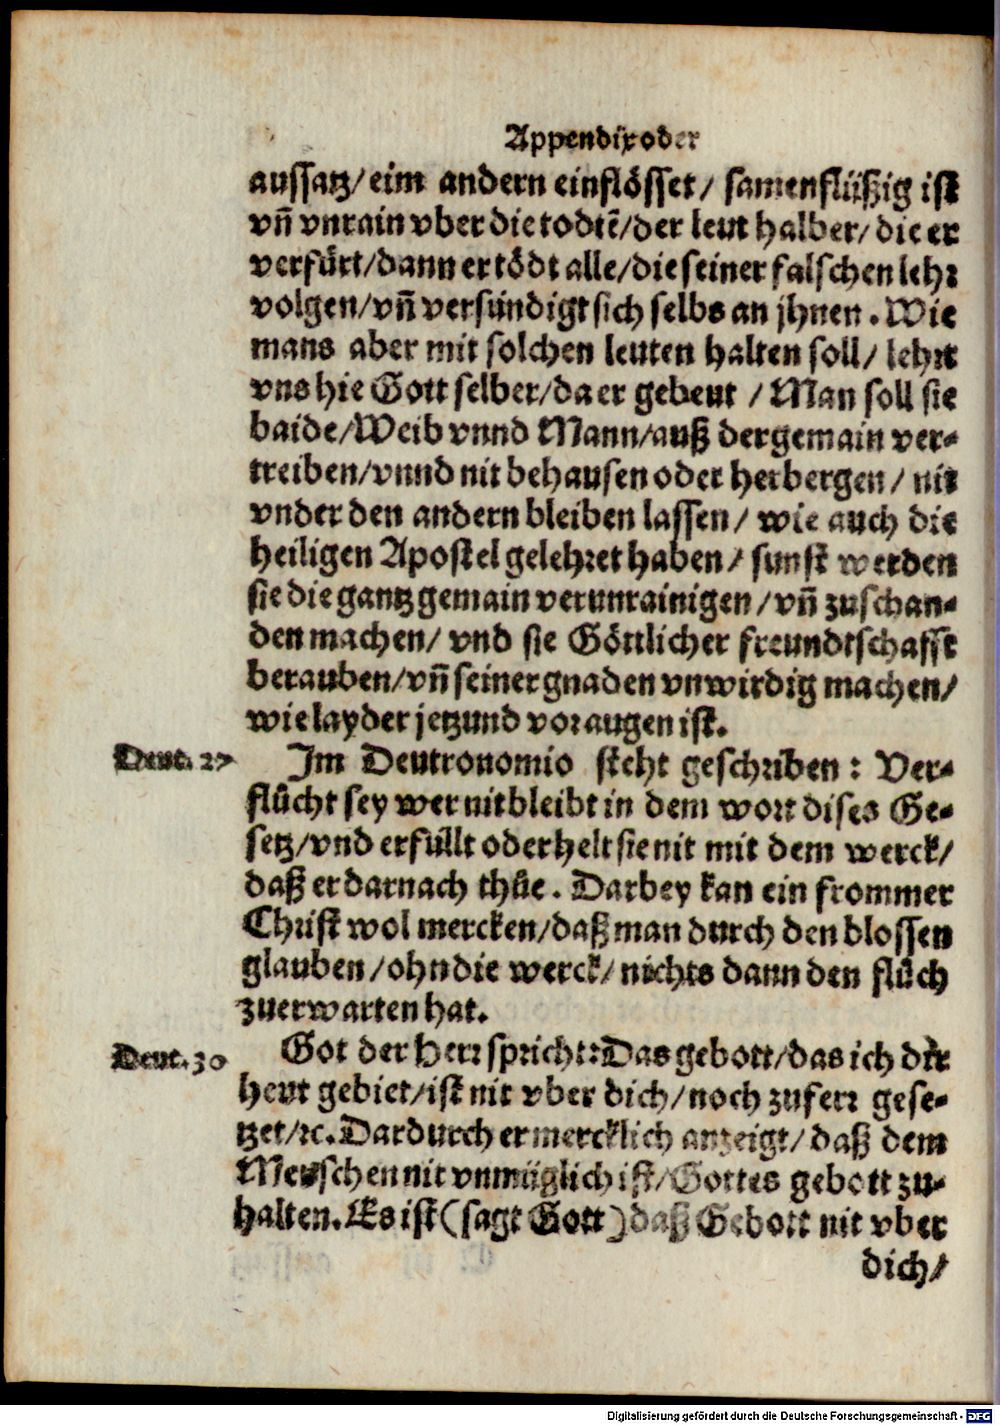 Appendix oder
aussatz/ eim andern einflösset/ samenflüßig ist
vñ vnrain vber die todtẽ/ der leut halber/ die er
verfürt/ dann er tödt alle/ die seiner falschen lehr
volgen/ vñ versündigt sich selbs an jhnen. Wie
mans aber mit solchen leuten halten soll/ lehrt
vns hie Gott selber/ da er gebeut / Man soll sie
baide/ Weib vnnd Mann/ auß der gemain ver-
treiben/ vnnd nit behausen oder herbergen / nit
vnder den andern bleiben lassen/ wie auch die
heiligen Apostel gelehret haben/ sunst werden
sie die gantz gemain verunrainigen/ vñ zuschan-
den machen/ vnd sie Göttlicher freundtschafft
berauben/ vñ seiner gnaden vnwirdig machen/
wie layder jetzund vor augen ist.
Deut. 27
Im Deutronomio steht geschriben: Ver-
flůcht sey wer nit bleibt in dem wort dises Ge-
setz/ vnd erfüllt oder helt sie nit mit dem werck/
daß er darnach thůe. Darbey kan ein frommer
Christ wol mercken/ daß man durch den blossen
glauben/ ohn die werck/ nichts dann den flůch
zuerwarten hat.
Deut. 30
Got der Herr spricht: Das gebott/ das ich dir
heut gebiet/ ist nit vber dich/ noch zu ferr gese-
tzet/ ꝛc. Dardurch er mercklich anzeigt/ daß dem
Menschen nit vnmüglich ist/ Gottes gebott zu-
halten. Es ist (sagt Gott) daß Gebott nit vber
dich/
Digitalisierung gefördert durch die Deutsche Forschungsgemeinschaft - DFG